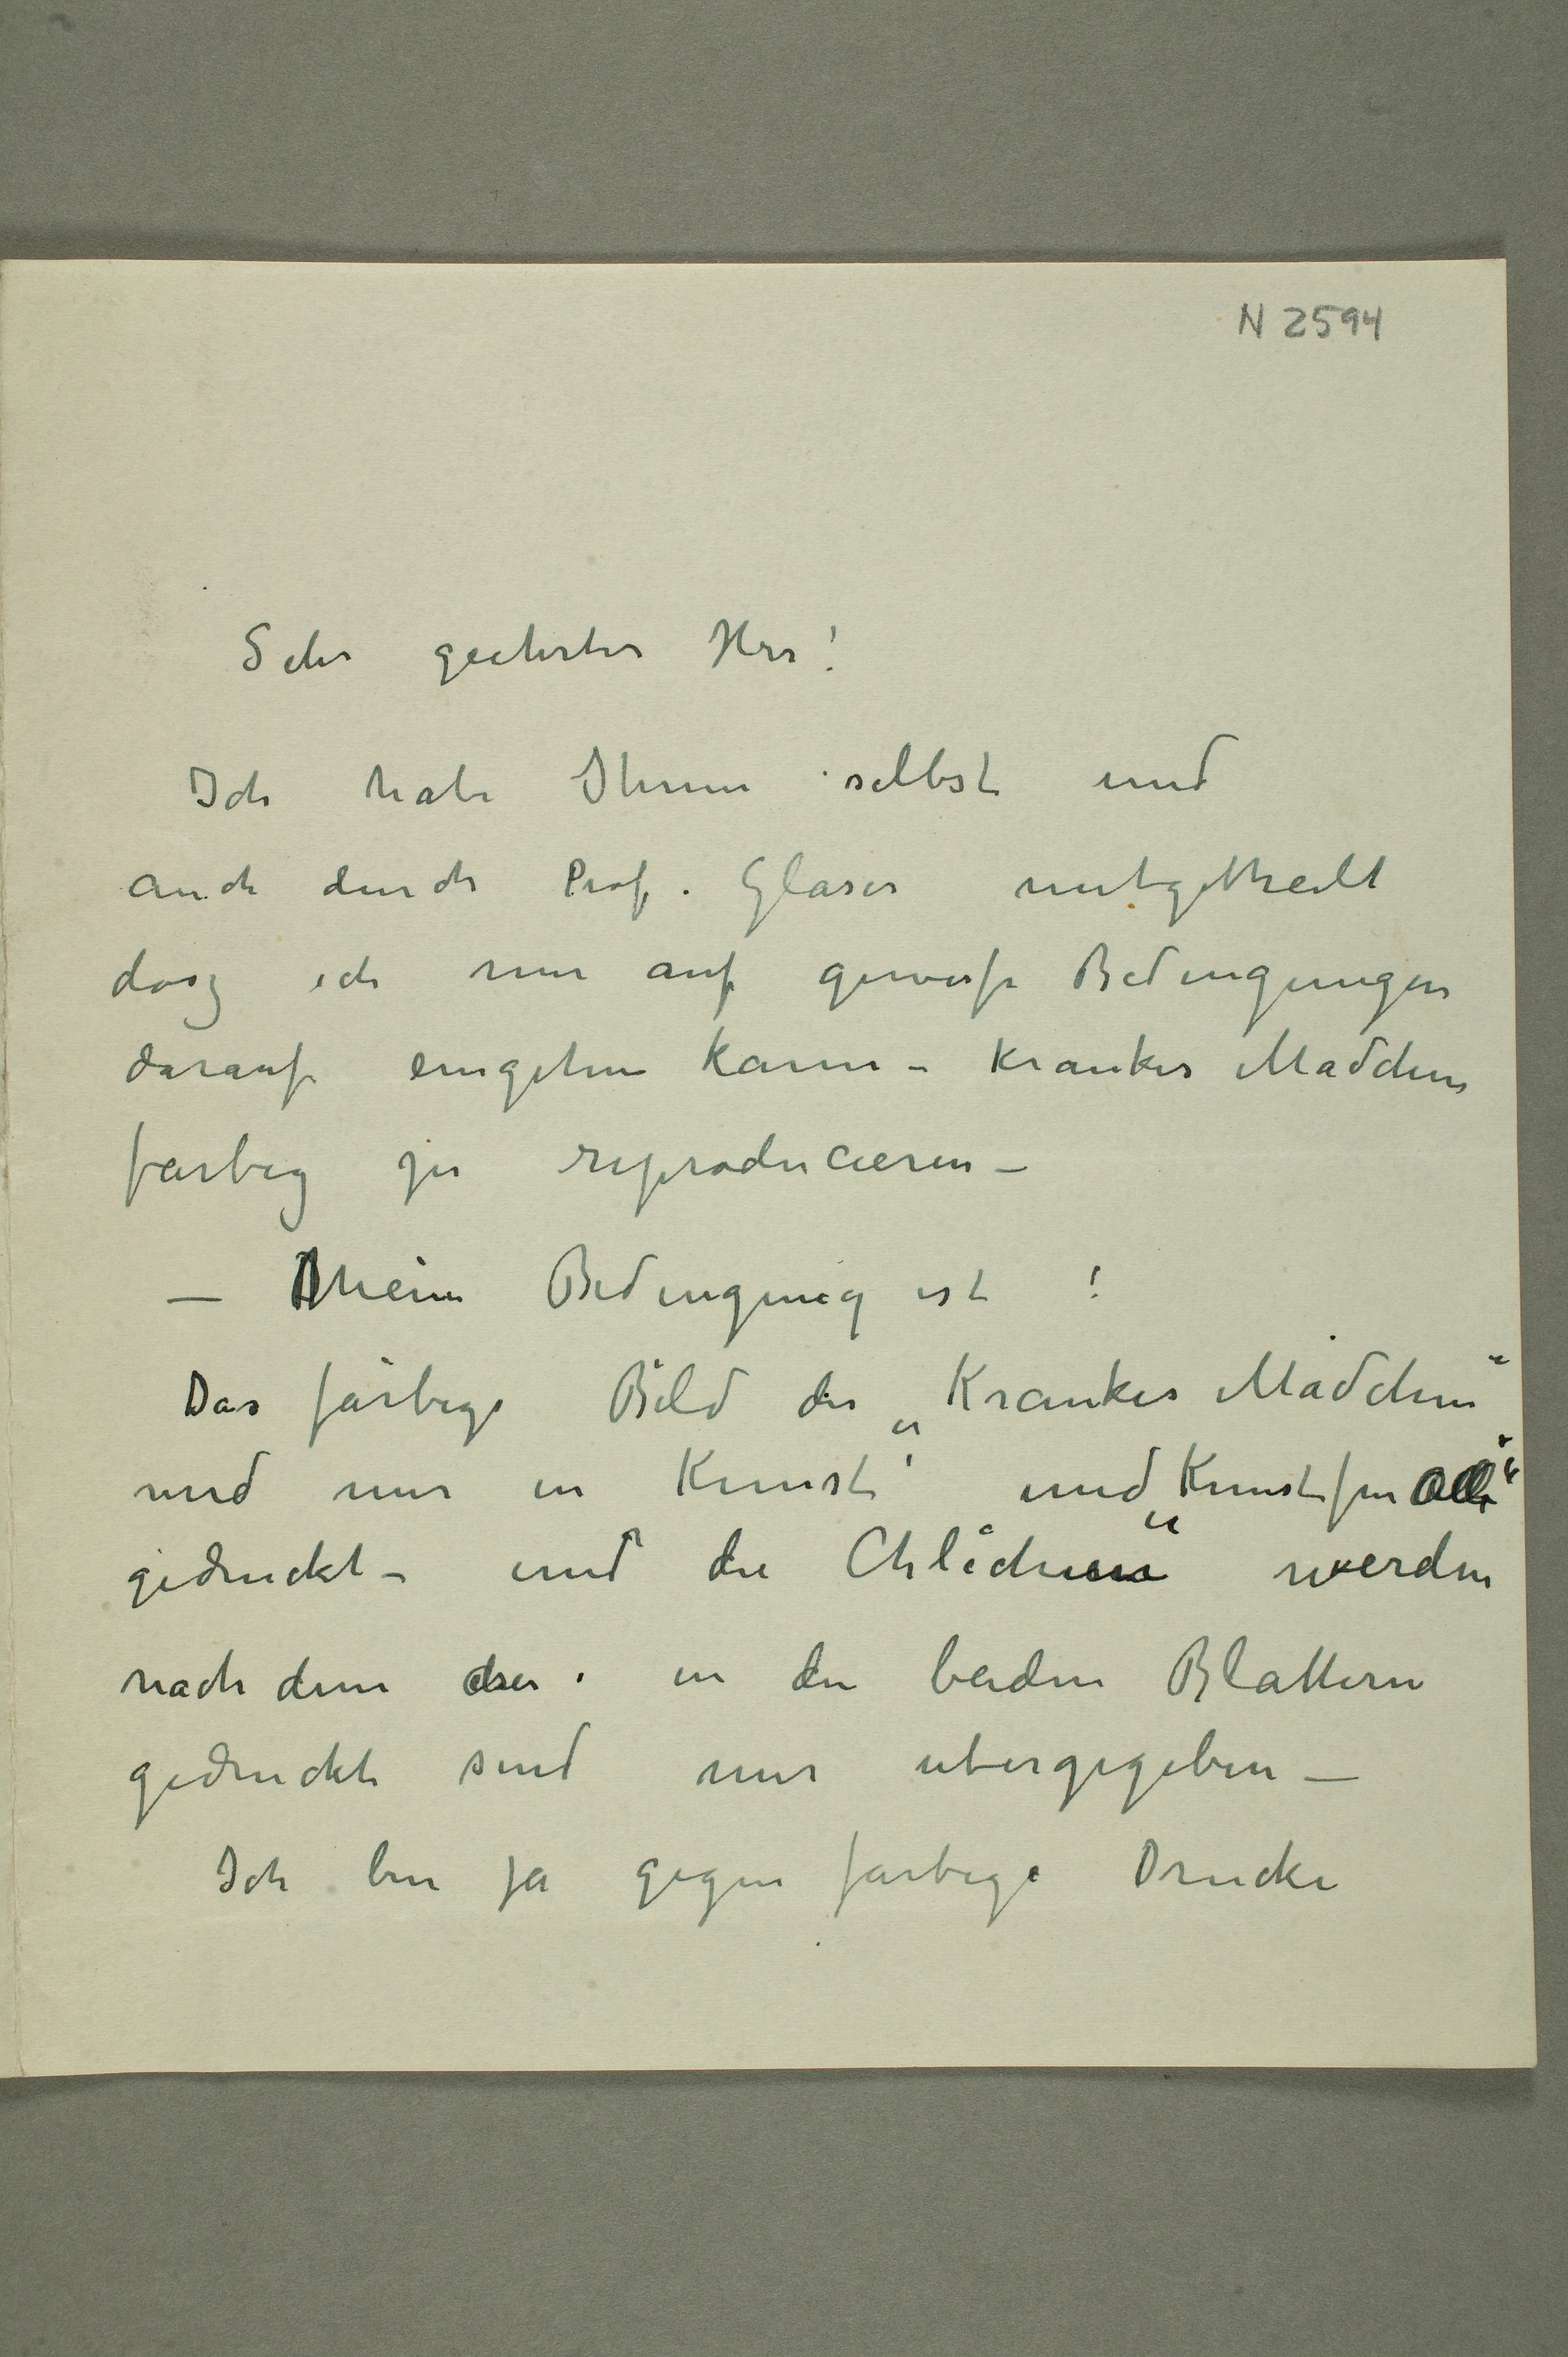 N 2594
Sehr geehrter Herr!
Ich habe Ihnen selbst und
auch durch Prof. Glaser mitgetheilt
dasz ich nur auf gewisse Bedingungen
darauf eingehen kann – Krankes Mädchen
farbig zu reproducieren –
– Meine Bedingung ist !
Das farbige Bild des „Krankes Mädchen“
wird nur in „Kunst“ und „Kunst für Alle“
gedruckt – und die Chlichen werden
nachdem in den beiden Blättern
gedruckt sind mir übergegeben –
Ich bin ja gegen farbige Drucke